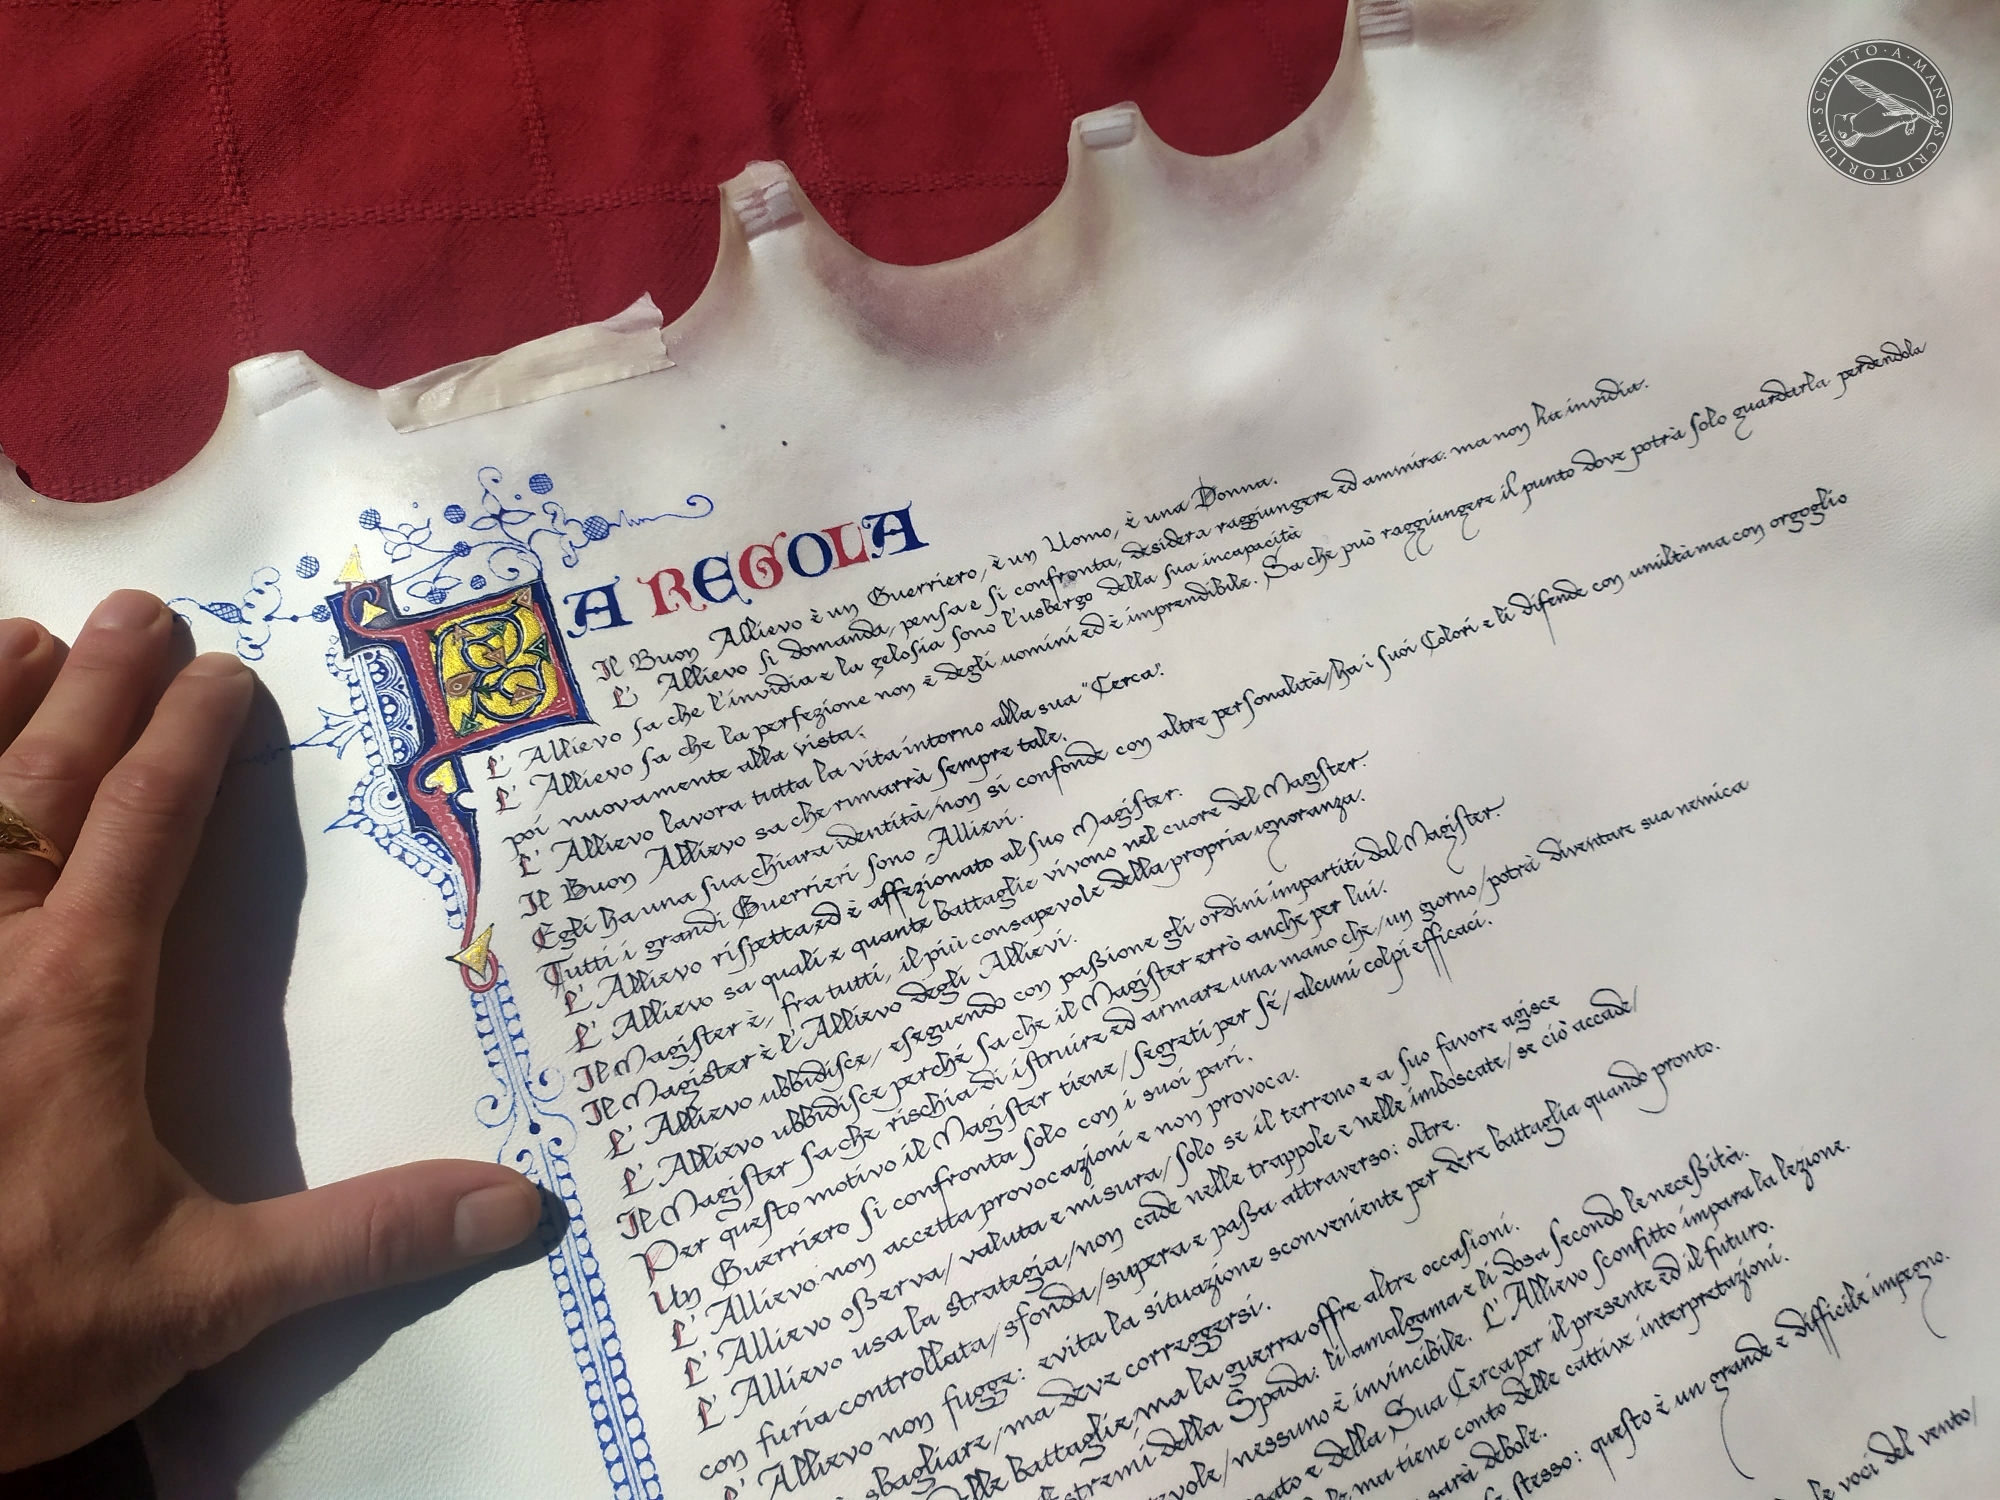 SCRITTO·A·MANO·SCRIPTORIUM·
LA REGOLA
Il Buon Allievo è un Guerriero, è un Uomo, è una Donna.
L' Allievo si domanda, pensa e si confronta, desidera raggiungere ed ammira: ma non ha invidia.
L' Allievo sa che l'invidia e la gelosia sono l'usbergo della sua incapacità
L' Allievo sa che la perfezione non è degli uomini ed è imprendibile. Sa che può raggiungere il punto dove potrà solo guardarla perdendola
poi nuovamente alla vista.
L' Allievo lavora tutta la vita intorno alla sua "Cerca".
Il Buon Allievo sa che rimarrà sempre tale.
Egli ha una sua chiara identità/non si confonde con altre personalità/ha i suoi Colori e li difende con umiltà ma con orgoglio
Tutti i grandi Guerrieri sono Allievi.
L' Allievo rispetta ed è affezionato al suo Magister.
L' Allievo sa quali e quante battaglie vivono nel cuore del Magister.
Il Magister è, fra tutti, il più consapevole della propria ignoranza.
Il Magister è l'Allievo degli Allievi.
L' Allievo ubbidisce/ eseguendo con paßione gli ordini impartiti dal Magister.
L' Allievo ubbidisce perché sa che il Magister errò anche per lui.
Il Magister sa che rischia di istruire ed armare una mano che/un giorno/potrà diventare sua nemica
Per questo motivo il Magister tiene/segreti per sé/alcuni colpi efficaci.
Un Guerriero si confronta solo con i suoi pari.
L' Allievo non accetta provocazioni e non provoca.
L' Allievo oßerva/ valuta e misura/solo se il terreno e a suo favore agisce
L' Allievo usa la strategia/non cade nelle trappole e nelle imboscate/se ciò accade/
con furia controllata/sfonda/supera e paßa attraverso: oltre.
L' Allievo non fugge: evita la situazione sconveniente per dere battaglia quando pronto.
sbagliare/ma deve correggersi.
elle battaglie/ma la guerra offre altre occasioni.
stremi della Spada: li amalgama e li dosa secondo le neceßità.
evole/nessuno è invincibile. L' Allievo sconfitto impara la lezione.
ato e della Sua Cerca per il presente ed il futuro.
ma tiene conto delle cattive interpretazioni.
sarà debole.
stesso: questo è un grande e difficile impegno.
le voci del vento/